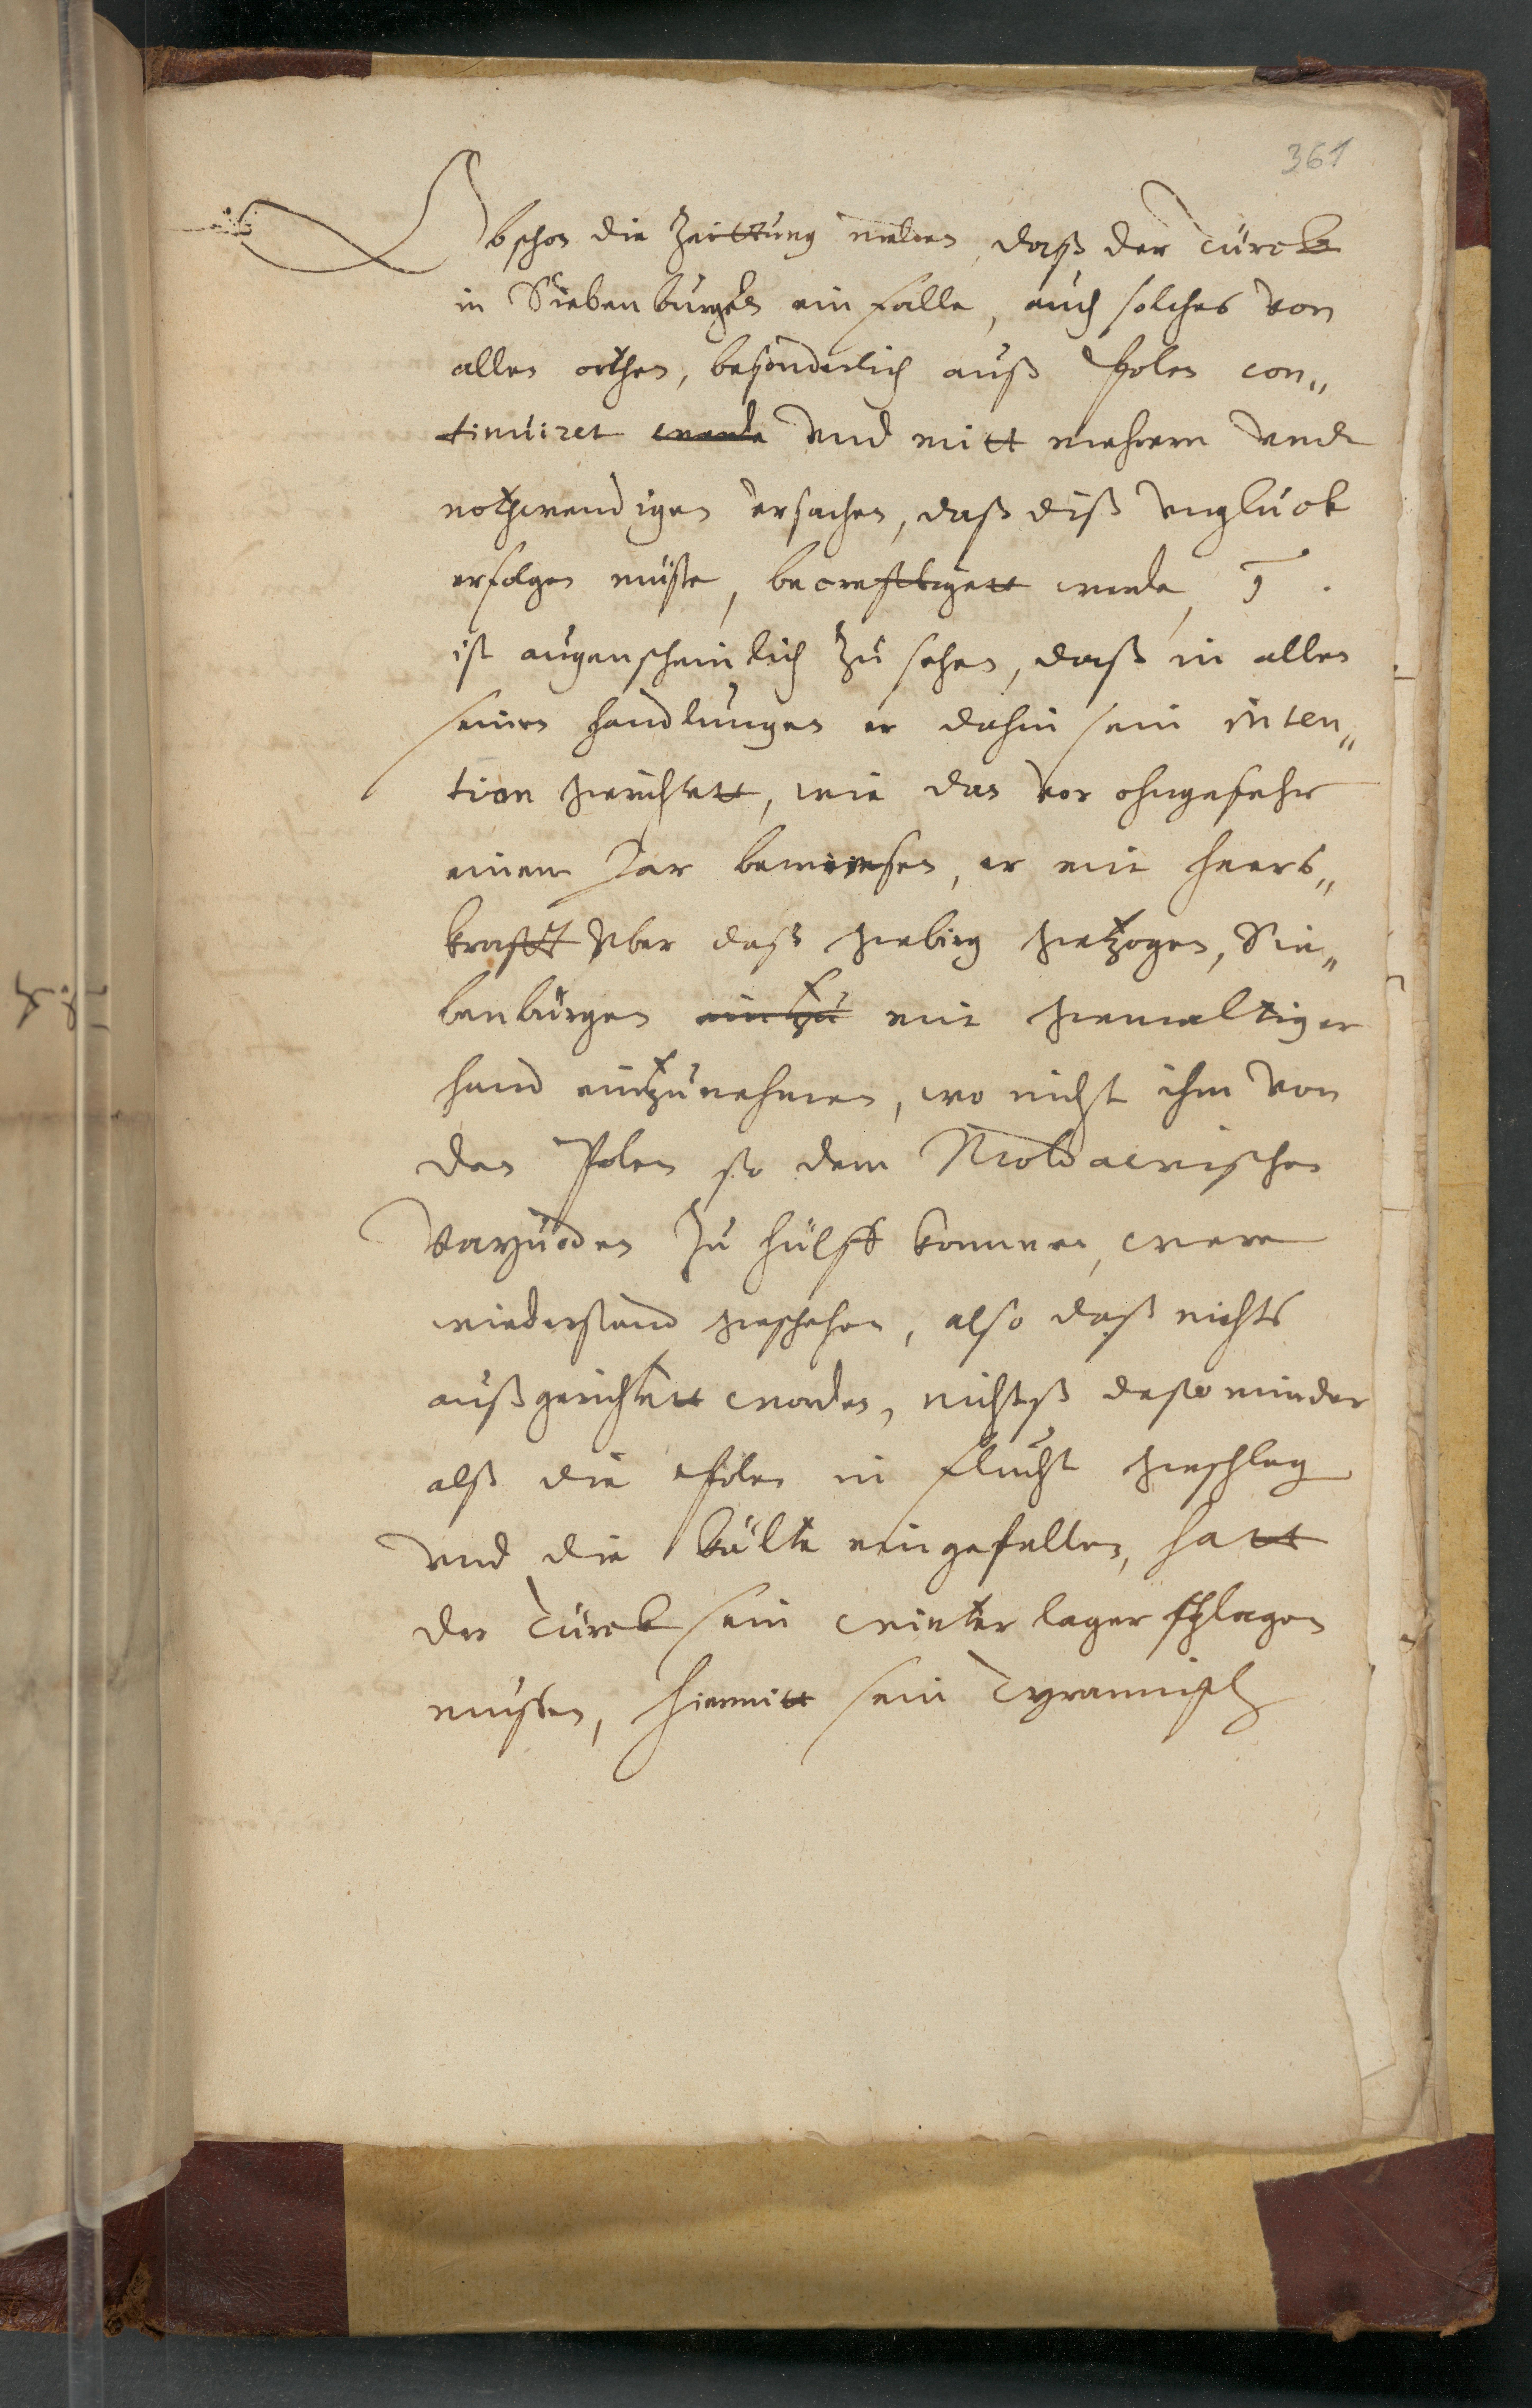 361
Obschon die Zeittung melden, daß der Türck
in Siebenbürgen ein falle, auch solches von
allen orthen, besonderlich auß Polen con„
tinuiret werde vnd mitt mehrern vnd
nothwendigen vrsachen, daß diß vnglück
erfolgen müste, becreftigett werde,
ist augenscheinlich zu sehen, daß in allen
seinen handlungen er dahin sein inten„
tion gerichtett, wie dan vor ohngefehr
einem Jar bewiesen, er mit heers„
krafft vber daß gebirg gezogen, Sie„
benbürgen einzu mit gewaltiger
hand einzunehmen, wo nicht ihm von
den Polen so dem Moldawischen
Vayuoden zu hülff kommen, were
wiederstand geschehen, also daß nichts
außgerichtett worden, nichtß desto minder
alß die Polen in flucht geschlag
vnd die kälte eingefallen, hatt
der Türck sein winter lager schlagen
müssen, hiermitt sein Tyrannisch